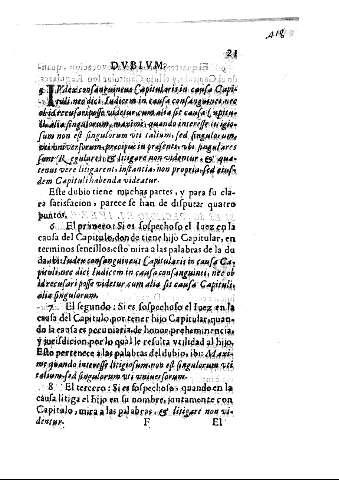 418
21
DVBIVM.
IVdex consanguineus Capitularis in causa Capi
tuli, nec dici Iudicem in causa consanguinei, nec
ob id recusari posse videtur cum alia sit causa Capitu-
li, alia singulorum, maximè quando interesse litigio
sum non est singulorum vti talium, sed singulorum, vt
vniuersorum, præcipuè in præsenti, vbi singulares
sunt Regulares, & litigare non videntur, & qua-
tenus vere litigarent, instantia non propria, sed eius-
dem Capituli habenda videatur.
Este dubio tiene muchas partes, y para su cla-
ra satisfacion, parece se han de disputar quatro
puntos.
6 El primero: Si es sospechoso el Iuez en la
causa del Capitulo, donde tiene hijo Capitular, en
terminos sencillos este mira a las palabras de la du
da, ibi: Iudex consanguineus Capitularis in causa Ca-
pituli, nec dici Iudicem in causa consanguinei, nec ob
id recusari posse videtur, cum alia sit causa Capituli,
alia singulorum.
7 El segundo: Si es sospechoso el Iuez en la
causa del Capitulo, por tener hijo Capitular, quan-
do la causa es pecuniaria, de honor, preheminencia,
y jurisdicion, por lo qual le resulta vtilidad al hijo.
Esto pertenece a las palabras del dubio, ibi: Maxi-
mè quando interesse litigiosum non est singulorum vti
talium, sed singulorum vti vniuersorum.
8 El tercero: Si es sospechoso, quando en la
causa litiga el hijo en su nombre, juntamente con
Capitulo, mira a las palabras, & litigare non vi-
dentur.
F El